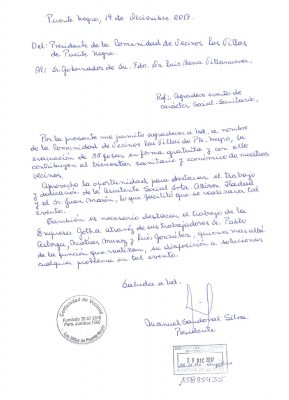 Puente Negro, 19 de Diciembre 2017.
Del: Presidente de la Comunidad de Vecinos Las Villas
de Puente Negro.
AR: Sr. Gobernador de Sn. Fdo. Dr. Luis Barra Villanueva.
Ref: Agradece evento de
carácter Social-Sanitario,
Por la presente me permito agradecer a Ud. a nombre
de la Comunidad de Vecinos Las Villas de Pte. Negro, la
evacuación de 35 fosas en forma gratuita y con ello
contribuyen al bienestar sanitario y económico de nuestros
vecinos,
Aprovecho la oportunidad para destacar el trabajo
y dedicación de la Asistente Social Srta. Allison Haddad
y el Sr. Juan Marín, lo que facilitó que se realizara tal
evento.
También es necesario destacar el trabajo de la
Empresa Gotha através de sus trabajadores Sr. Pablo
Matías Muñoz y Luis González, quienes más allá
de la función que realizan, su disposición a solucionar
cualquier problema en tal evento.
Saluda a Ud.
Manuel Sandoval Silva
Presidente
Comunidad de Vecinos
Fundado 20-07-2010
Pers. Jurídica 1262
Las Villas de Puente Negro
20 DIC 2017
15895435